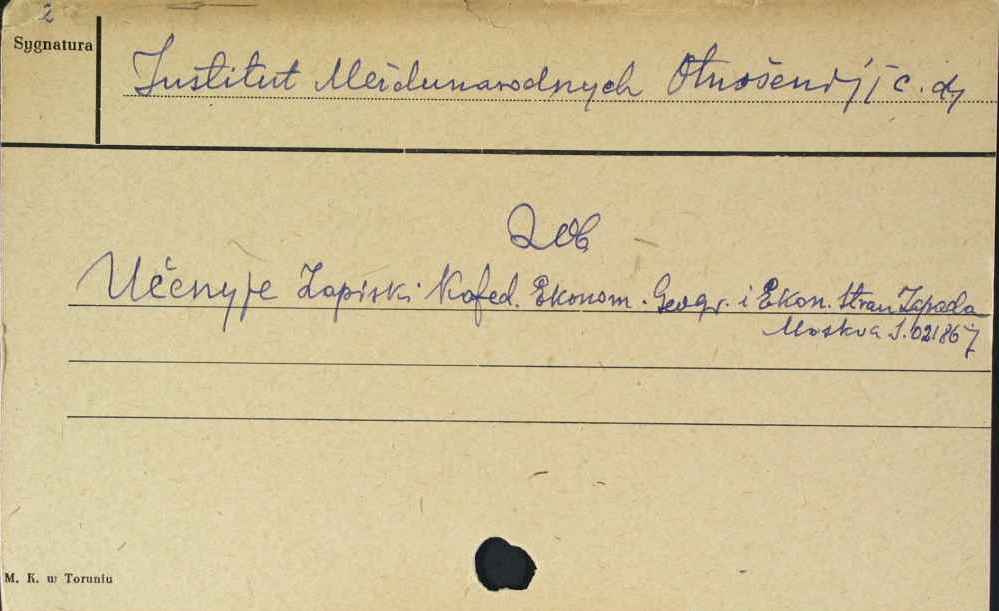 2
Sygnatura
Institut Meždunarodnych Otnošenij i c. d.
Zob
Učenyje Zapiski Kafed. Ekonom. Geogr. i Ekon. Stran Zapada
Moskva S. 02186
M. K. w Toruniu